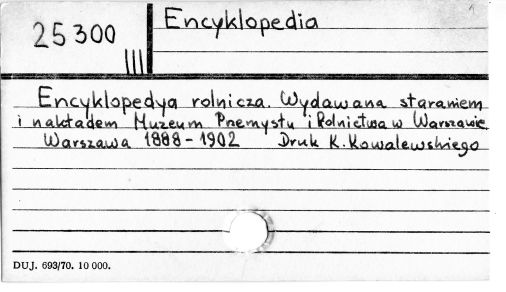 25300
III
Encyklopedia
1
Encyklopedya rolnicza. Wydawana staraniem
i nakładem Muzeum Przemysłu i Rolnictwa w Warszawie
Warszawa 1888-1902 Druk K. Kowalewskiego
DUJ. 693/70. 10 000.